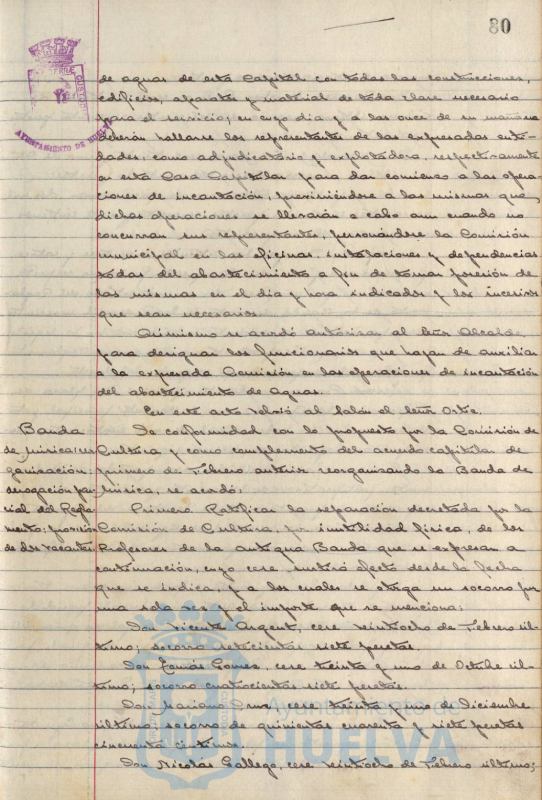 80
AYUNTAMIENTO DE HUELVA
de aguas de esta Capital con todas las construcciones,
edificios, aparatos y material de toda clase necesario
para el servicio; en cuyo dia y a las once de su mañana
deberán hallarse los representantes de las expresadas enti-
dades, como adjudicataria y explotadora, respectivamente
en esta Casa Capitular para dar comienzo a las opera-
ciones de incautación, previniéndose a las mismas que
dichas operaciones se llevarán a cabo aun cuando no
concurran sus representantes, personándose la Comisión
municipal en las oficinas, instalaciones y dependencias
todas del abastecimiento a fin de tomar posesión de
las mismas en el dia y hora indicados y los
que sean necesarios.
Asimismo se acordó autorizar al Señor Alcalde
para designar los funcionarios que hayan de auxiliar
a la expresada Comisión en las operaciones de incautación
del abastecimiento de aguas.
En este acto volvió al Salón el Señor Ortiz.
Banda
de música: reor
ganización
derogación par-
cial del Regla-
mento; provisión
de dos vacantes
De conformidad con lo propuesto por la Comisión de
Cultura y como complemento del acuerdo capitular de
primero de Febrero anterior reorganizando la Banda de
Música, se acordó:
Primero Ratificar la separación decretada por la
Comisión de Cultura, por inutilidad física, de los
Profesores de la antigua Banda que se expresan a
continuación, cuyo cese surtirá efecto desde la fecha
que se indica, y a los cuales se otorga un socorro por
una sola vez y el importe que se menciona:
Don Vicente Argent, cese veintiocho de Febrero úl-
timo; socorro setecientas siete pesetas.
Don Tomás Gomez, cese treinta y uno de Octubre úl-
timo; socorro cuatrocientas siete pesetas.
Don Mariano cese treinta y uno de Diciembre
último; socorro de quinientas cuarenta y siete pesetas
cincuenta céntimos.
Don Nicolás Gallego, cese veintiocho de Febrero último;
Ayuntamiento de
HUELVA